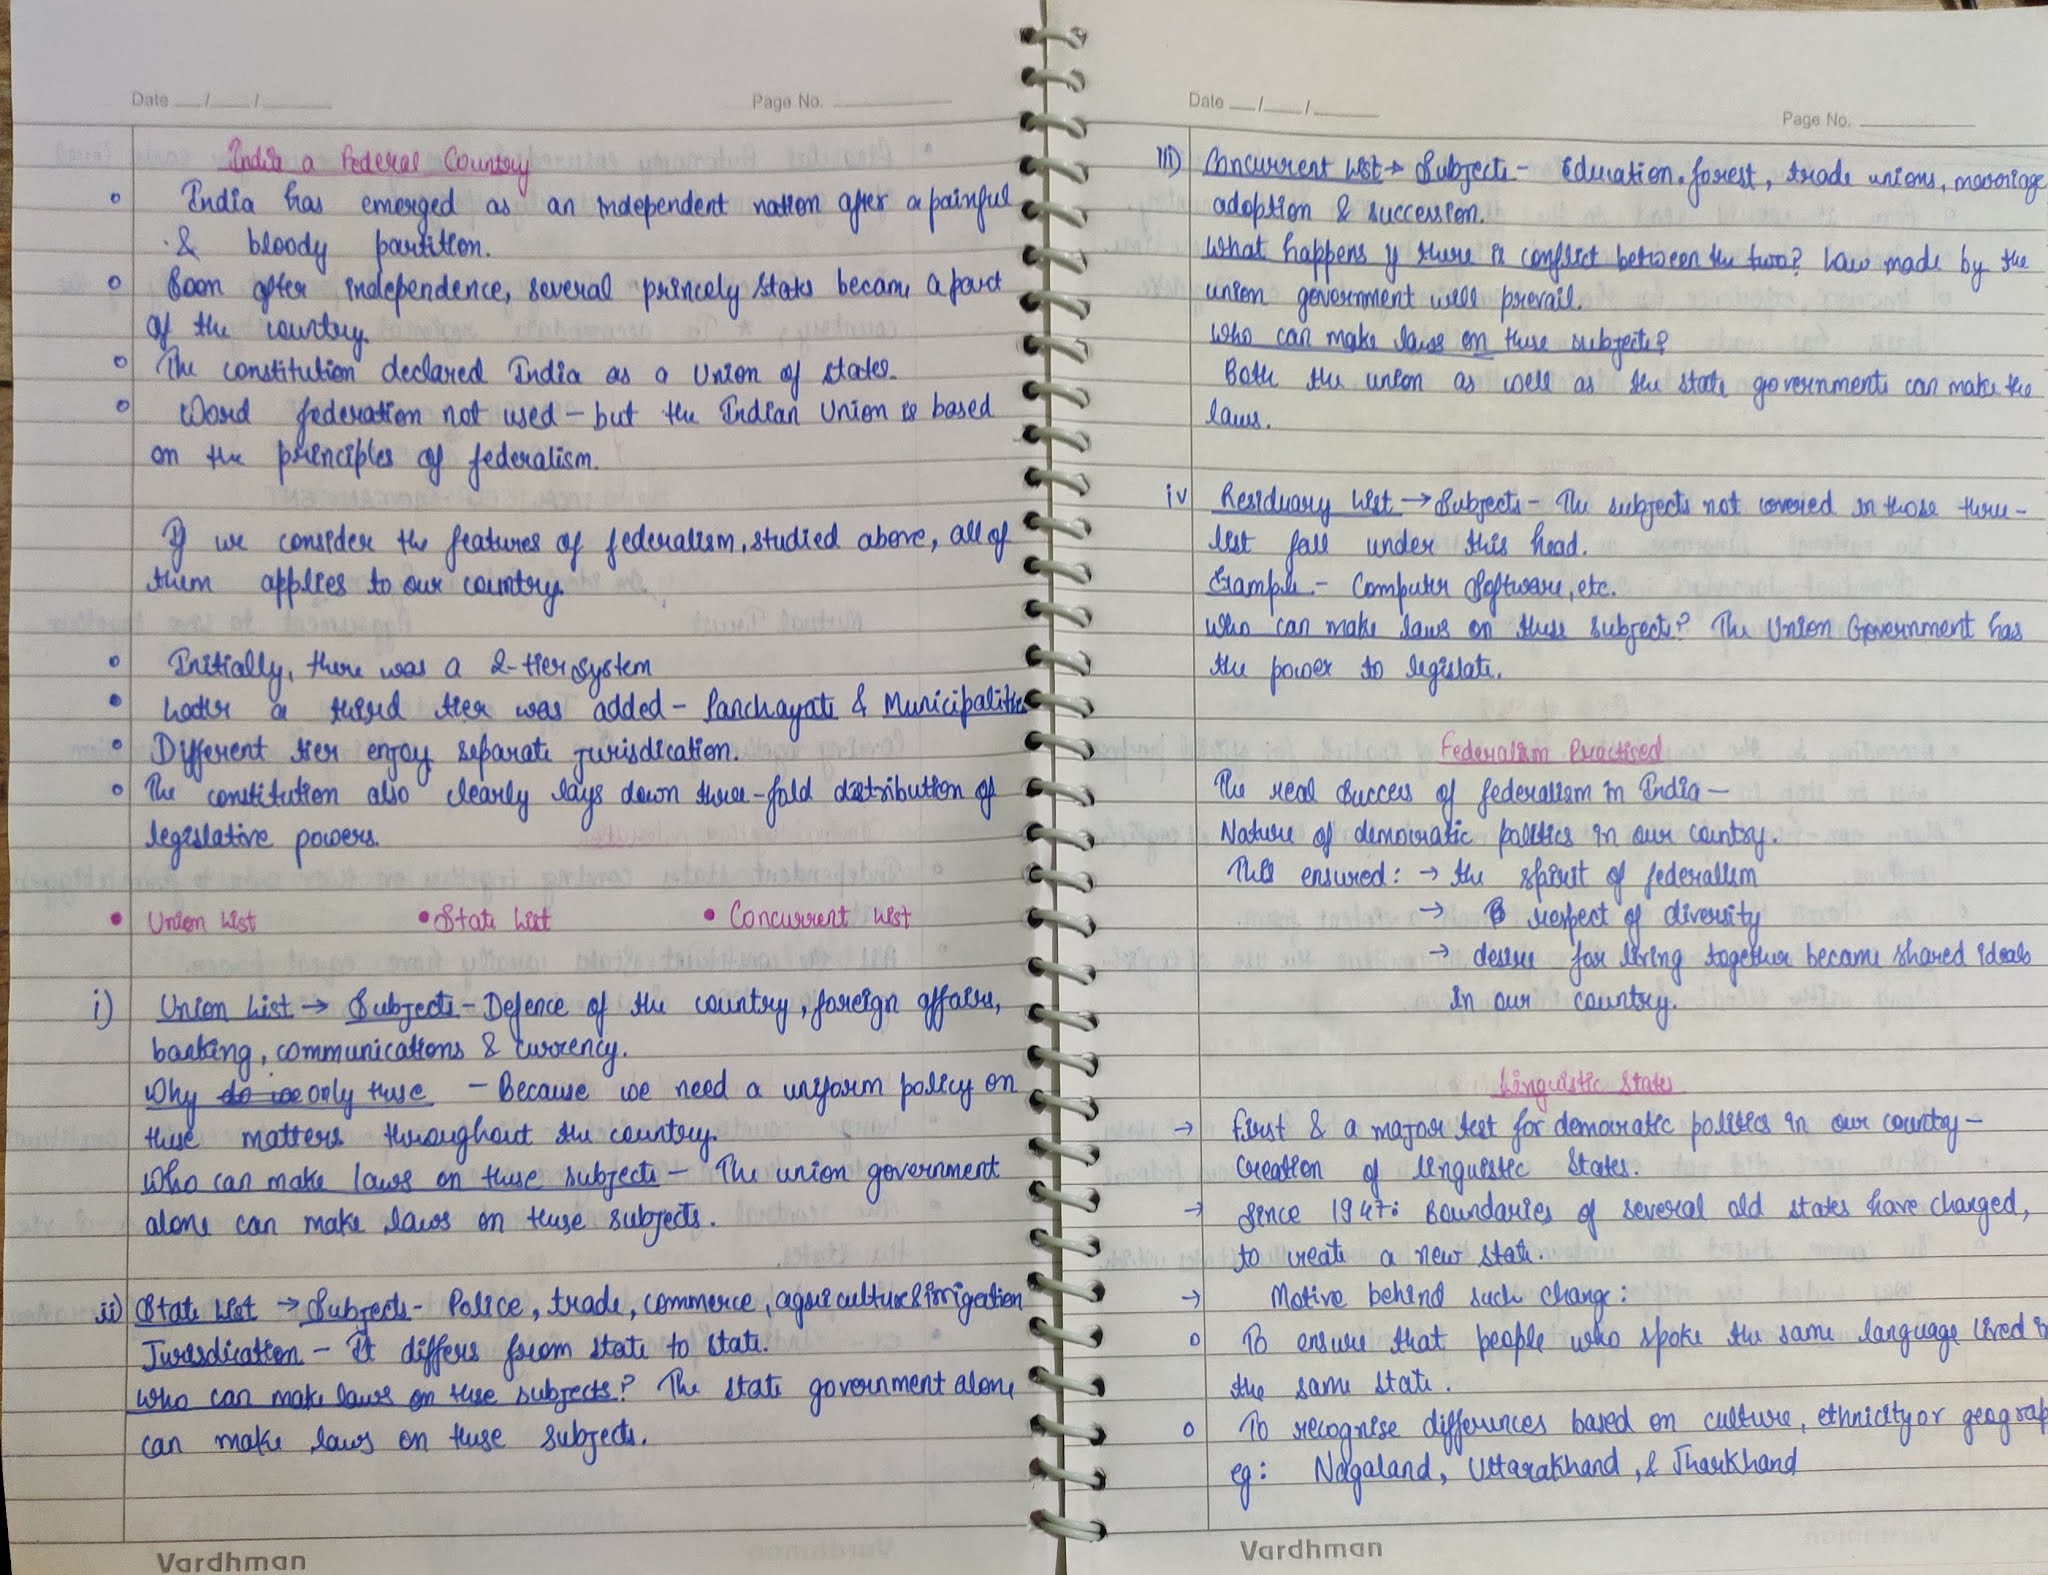 Date __/__/____
Page No. ______
India a Federal Country
India has emerged as an independent nation after a painful
& bloody partition.
Soon after independence, several princely states became a part
of the country.
The constitution declared India as a Union of states.
Word federation not used - but the Indian Union is based
on the principles of federalism.
If we consider the features of federalism, studied above, all of
them applies to our country.
Initially, there was a 2-tier system
Later a third tier was added - Panchayats & Municipalities
Different tier enjoy separate jurisdication.
The constitution also clearly lays down three-fold distribution of
legislative powers.
• Union List • State List • Concurrent List
i) Union List → Subjects - Defence of the country, foreign affairs,
banking, communications & currency.
Why do we only these - Because we need a uniform policy on
these matters throughout the country.
Who can make laws on these subjects - The union government
alone can make laws on these subjects.
ii) State List → Subjects - Police, trade, commerce, agriculture & irrigation
Jurisdication - It differs from state to state.
Who can make laws on these subjects? The state government alone
can make laws on these subjects.
Vardhman
Date __/__/____
Page No. ______
iii) Concurrent List → Subjects - Education, forest, trade unions, marriage
adoption & succession.
What happens if there is conflict between the two? Law made by the
union government will prevail.
Who can make laws on these subjects?
Both the union as well as the state governments can make the
laws.
iv Residuary List → Subjects - The subjects not covered in those three-
list fall under this head.
Example - Computer Software, etc.
Who can make laws on these subjects? The Union Government has
the power to legislate.
Federalism Practised
The real success of federalism in India -
Nature of democratic politics in our country.
This ensured: → the spirit of federalism
→ respect of diversity
→ desire for living together became shared ideals
in our country.
Linguistic States
→ First & a major test for democratic politics in our country -
Creation of linguistic States.
→ Since 1947: Boundaries of several old states have changed,
to create a new state.
→ Motive behind such change:
To ensure that people who spoke the same language lived in
the same state.
To recognise differences based on culture, ethnicity or geograp
eg: Nagaland, Uttarakhand, & Jharkhand
Vardhman